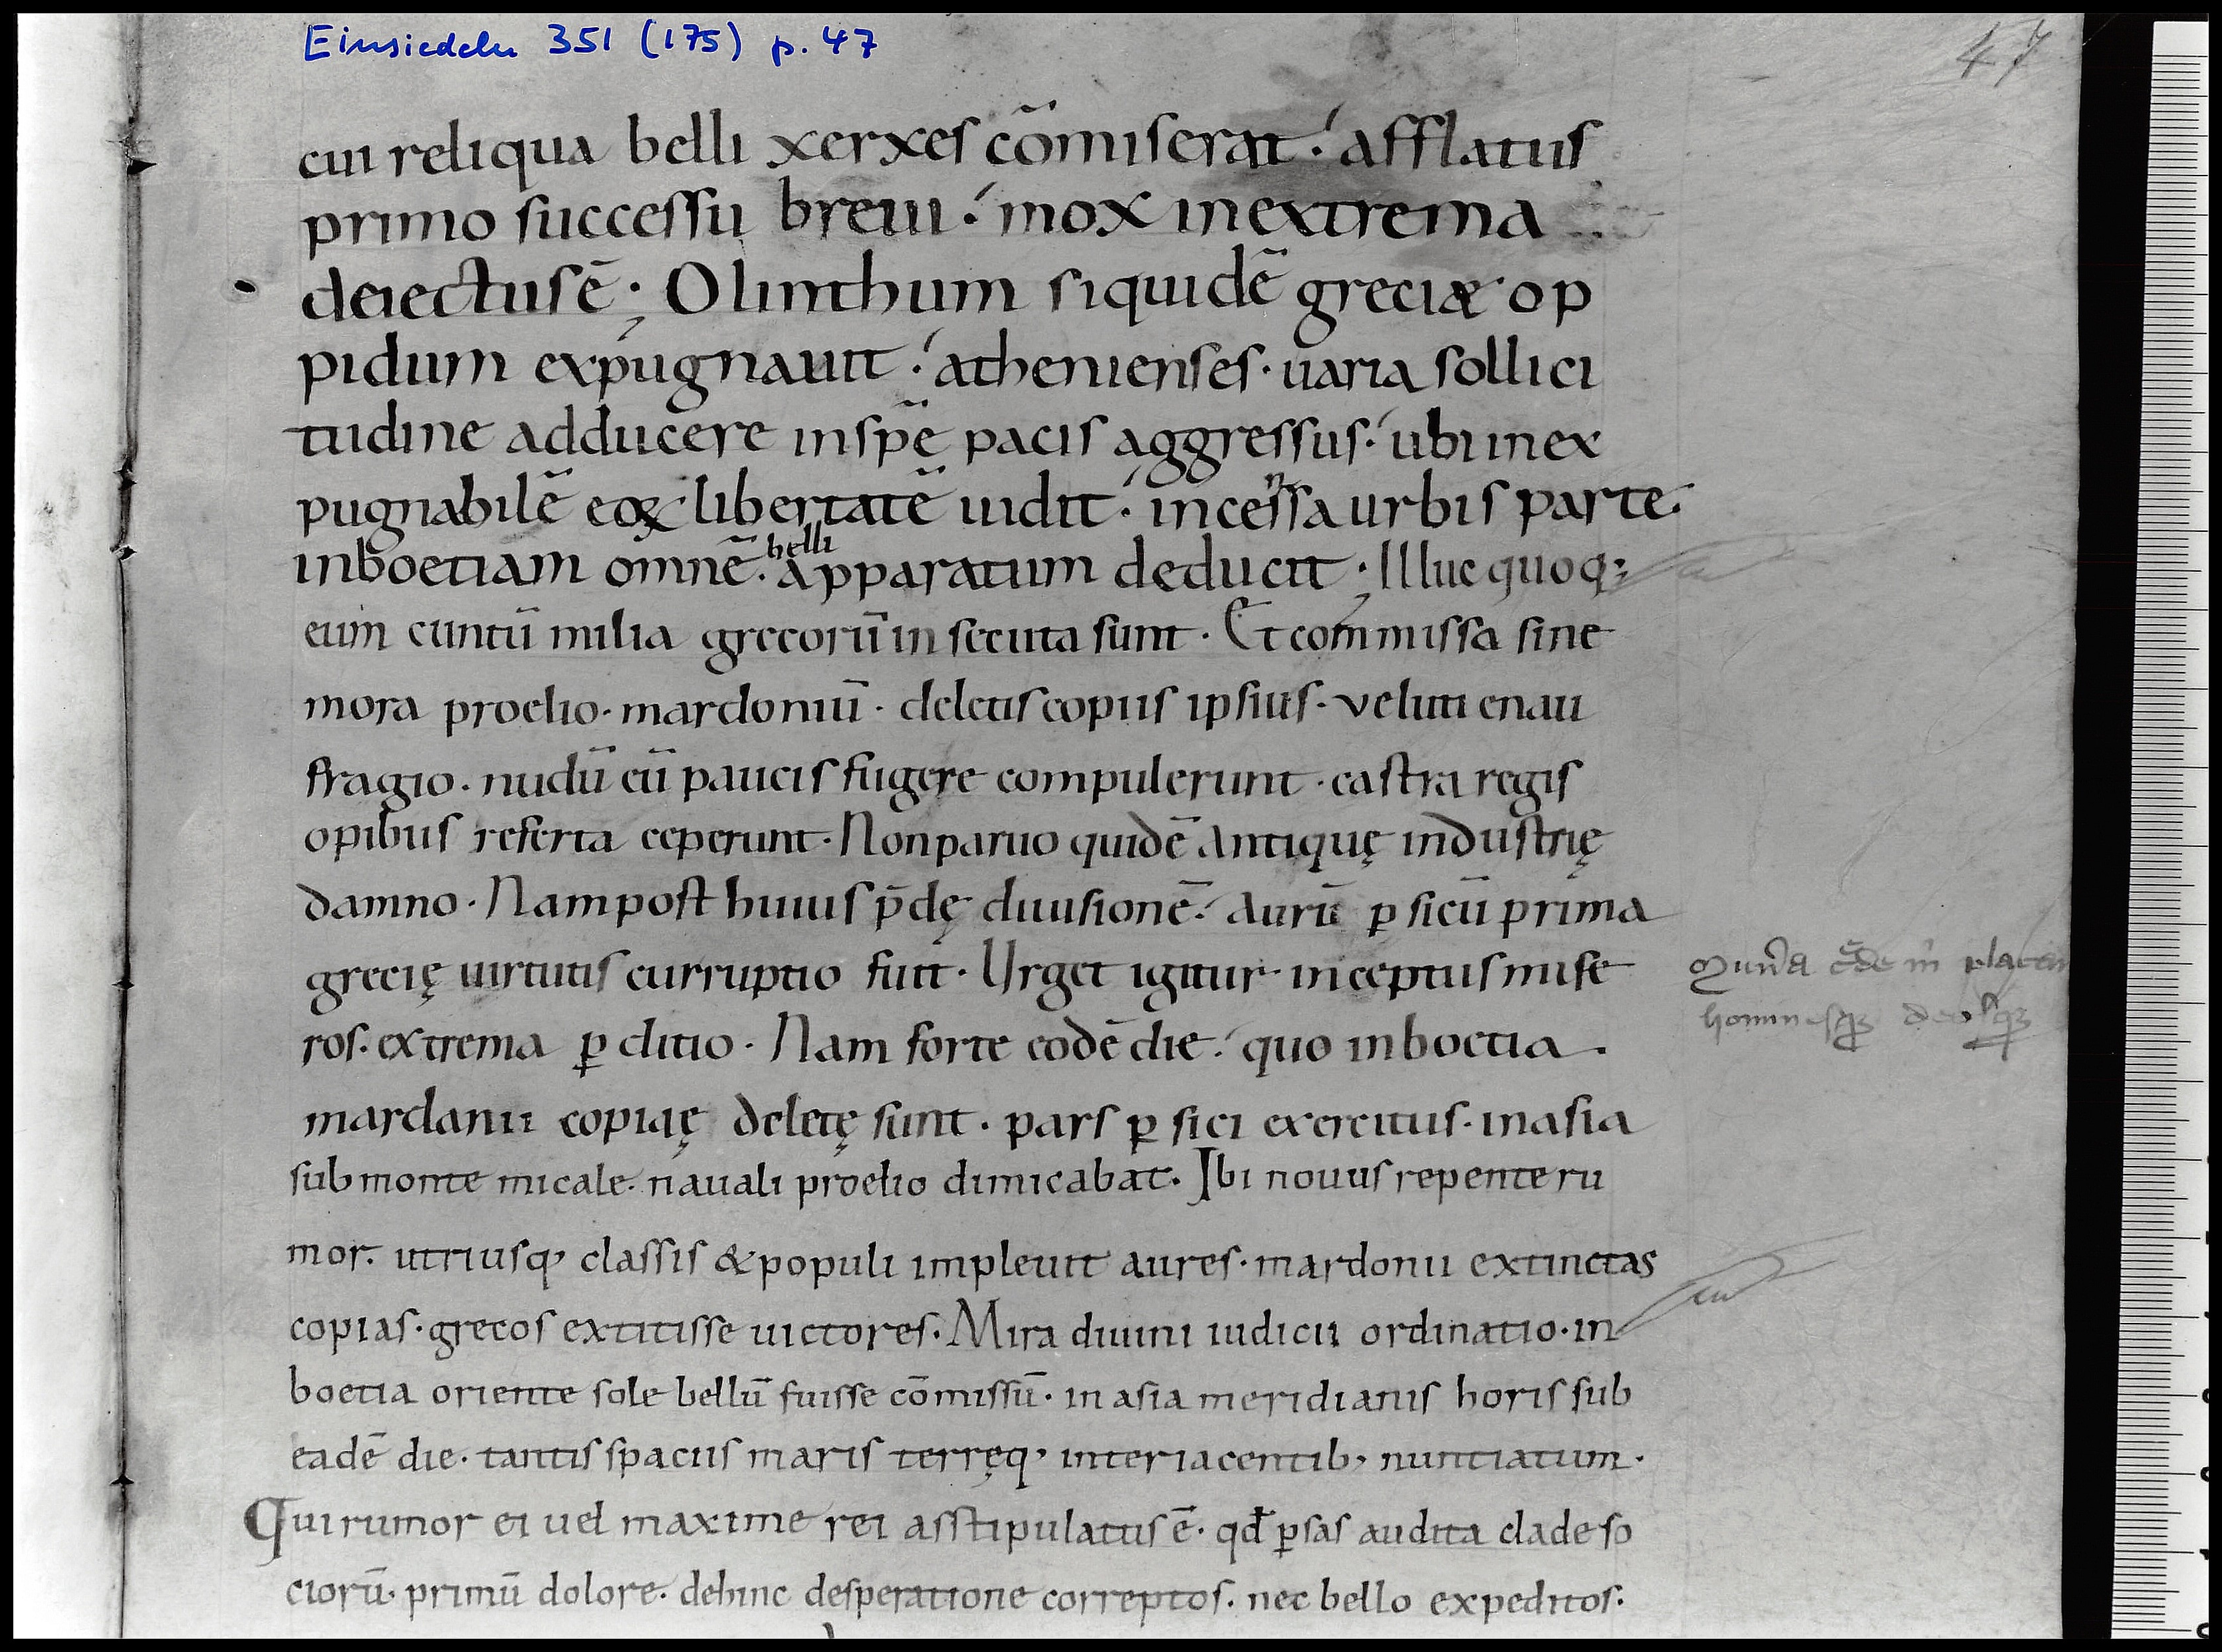 Einsiedeln 351 (175) p. 47
47
cui reliqua belli xerxes cōmiserat. afflatus
primo successu breui. mox inextrema
deiectusē; Olinthum siquidē greciæ op
pidum expugnauit. athenienses. uaria sollici
tudine adducere inspē pacis aggressus. ubi inex
pugnabilē eoꝝ libertatē uidit. incessa urbis parte.
inboetiam omnē. belli apparatum deducit; Illuc quoq;
eum cuntū milia grecorū in secuta sunt. Et commissa sine
mora proelio. mardoniū. deletis copiis ipsius. veluti enau
fragio. nudū cū paucis fugere compulerunt. castra regis
opibus referta ceperunt. Non paruo quidē antiquę industrię
damno. Nam post huius p̄dę diuisionē. aurū ꝑsicū prima
grecię uirtutis curruptio fuit. Urget igitur inceptus mise
ros. extrema ꝑditio. Nam forte eodē die. quo inboetia.
mardanii copiaę deletę sunt. pars ꝑsici exercitus. inasia
sub monte micale. nauali proelio dimicabat. Ibi nouus repente ru
mor. utriusq; classis & populi impleuit aures. mardonii extinctas
copias. grecos extitisse uictores. Mira diuini iudicii ordinatio. in
boetia oriente sole bellū fuisse cōmissū. in asia meridianis horis sub
eadē die. tantis spaciis maris terręq; interiacentib; nuntiatum.
Qui rumor ei uel maxime rei asstipulatus ē. qđ ꝑsas audita clade so
ciorū. primū dolore. dehinc desperatione correptos. nec bello expeditos.
hominesqꝫ deosqꝫ